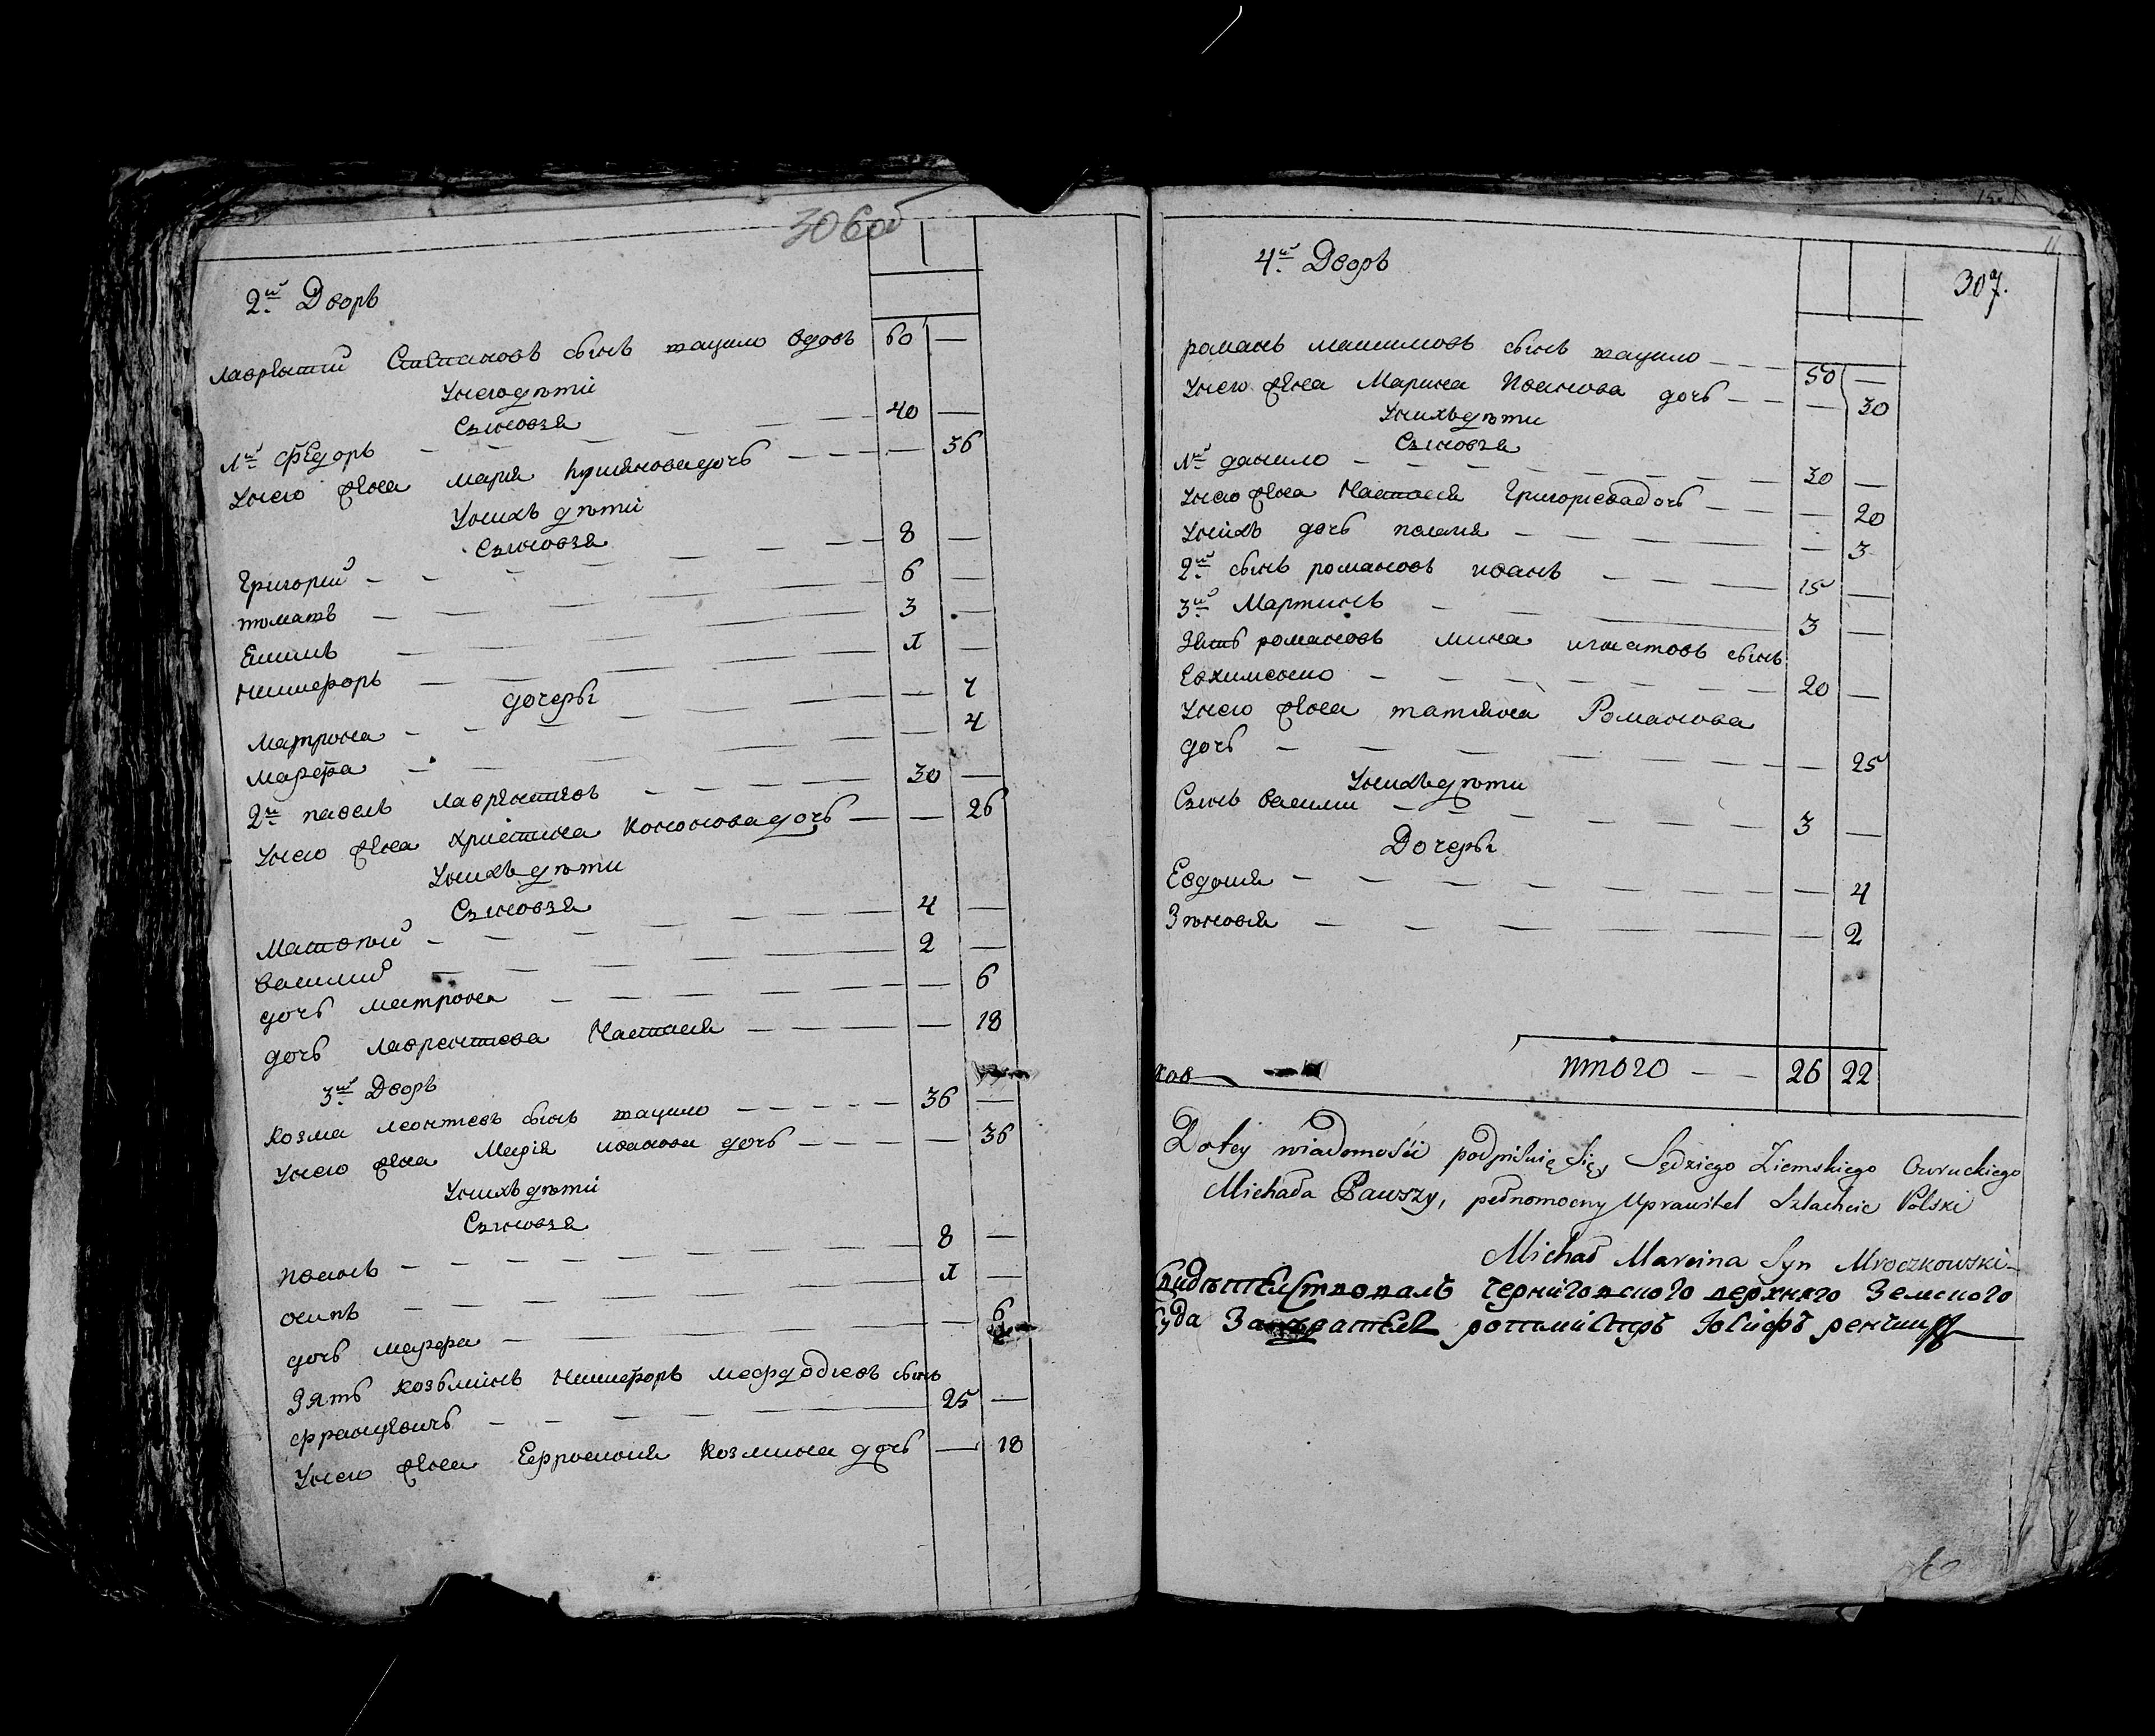 306об
2й Дворъ
Лаврентий Степановъ сынъ тацило вдовъ 60 —
Унего дѣти
Сыновя
1й Федоръ — 40 —
Унего жена мария дочь — — 36
Унихъ дѣти
Сыновя
Григорий — 8 —
томашъ — 6 —
3 —
никифоръ — 1 —
дочеры
Матрона — — 7
марфа — — 4
2й павелъ лаврентиевъ — 30 —
Унего жена христина кононова дочь — — 26
Унихъ дѣти
Сыновя
Матвѣй — 4 —
василий — 2 —
дочь матрона — — 6
дочь лаврентиева Настасия — — 18
3й Дворъ
козма леонтиевъ сынъ тацило — 36 —
Унего жена Мария иванова дочь — — 36
Унихъ дѣти
Сыновя
иванъ — 8 —
осипъ — 1 —
дочь марфа — — 6
Зять козьминъ никифоръ мефодиевъ сынъ
25 —
Унего жена Ефросиния козмина дочь — 18
307.
4й Дворъ
романъ максимовъ сынъ тацило — 50 —
Унего жена Марина Иванова дочь — — 30
Унихъ дѣти
Сыновя
1й данило — 30 —
Унего жена Настасия Григориева дочь — — 20
Унихъ дочь — — 3
2й сынъ романовъ иванъ — 15 —
3й Мартинъ — 3 —
Зять романовъ мина игнатовъ сынъ
Евхименко — 20 —
Унего жена татияна Романова
дочь — — 25
Унихъ дѣти
Сынъ василий — 3 —
Дочеры
Евдокия — — 4
Зѣновия — — 2
итого — 26 22
Do tey wiadomości podpisuię się, Sędziego Ziemskiego Owruckiego
Michała Pawszy, pełnomocny Uprawitel Szlachcic Polski
Michał Marcina Syn Mroczkowski
Свидѣтелствовалъ Черниговского верхнего Земского
Суда ротмистръ Иосифъ